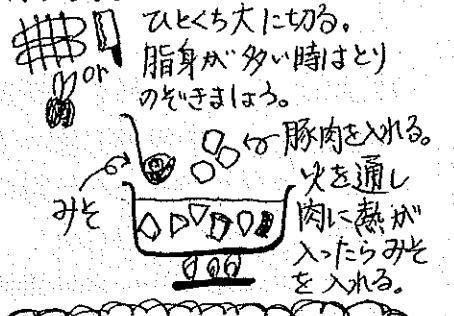 ひとくち大に切る。
脂身が多い時はとり
のぞきましょう。
or
豚肉を入れる。
火を通し
肉に熱が
入ったらみそ
を入れる。
みそ